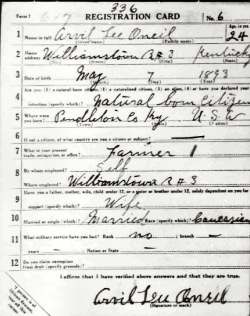 336
Form 1 REGISTRATION CARD No. 6
1 Name in full Orvil Lee Oneil Age, in yrs. 24
(Family name)
2 Home address Williamstown R#3 Kentucky
3 Date of birth May 7 1893
4 Natural born Citizen
5 Where were you born? Pendleton Co Ky U.S.A
6 If not a citizen, of what country are you a citizen or subject?
7 What is your present trade, occupation, or office? Farmer 1
8 By whom employed? Self
Where employed? Williamstown R#3
9 Have you a father, mother, wife, child under 12, or a sister or brother under 12, solely dependent on you for support (specify which)? Wife
10 Married or single (which)? Married Race (specify which)? Caucasian
11 What military service have you had? Rank no ; branch
years Nation or State
12 Do you claim exemption from draft (specify grounds)?
I affirm that I have verified above answers and that they are true.
Orvil Lee Oneil
(Signature or mark)